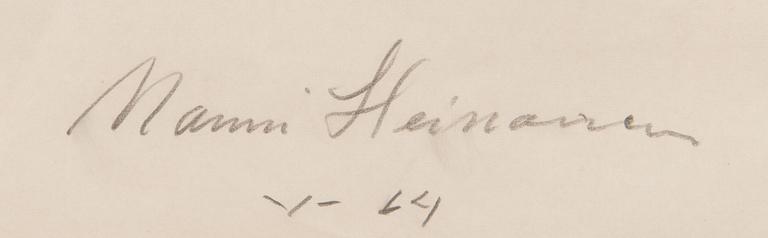 Nanni Heinonen
-64